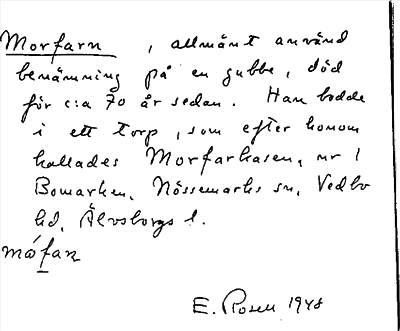 Morfarn, allmänt använd
benämning på en gubbe, död
för c:a 70 år sedan. Han bodde
i ett torp, som efter honom
kallades Morfarkasen, nr 1
Bomarken, Nössemarks sn, Vedbo
hd, Älvsborgs l.
måfan
E. Rosen 1948